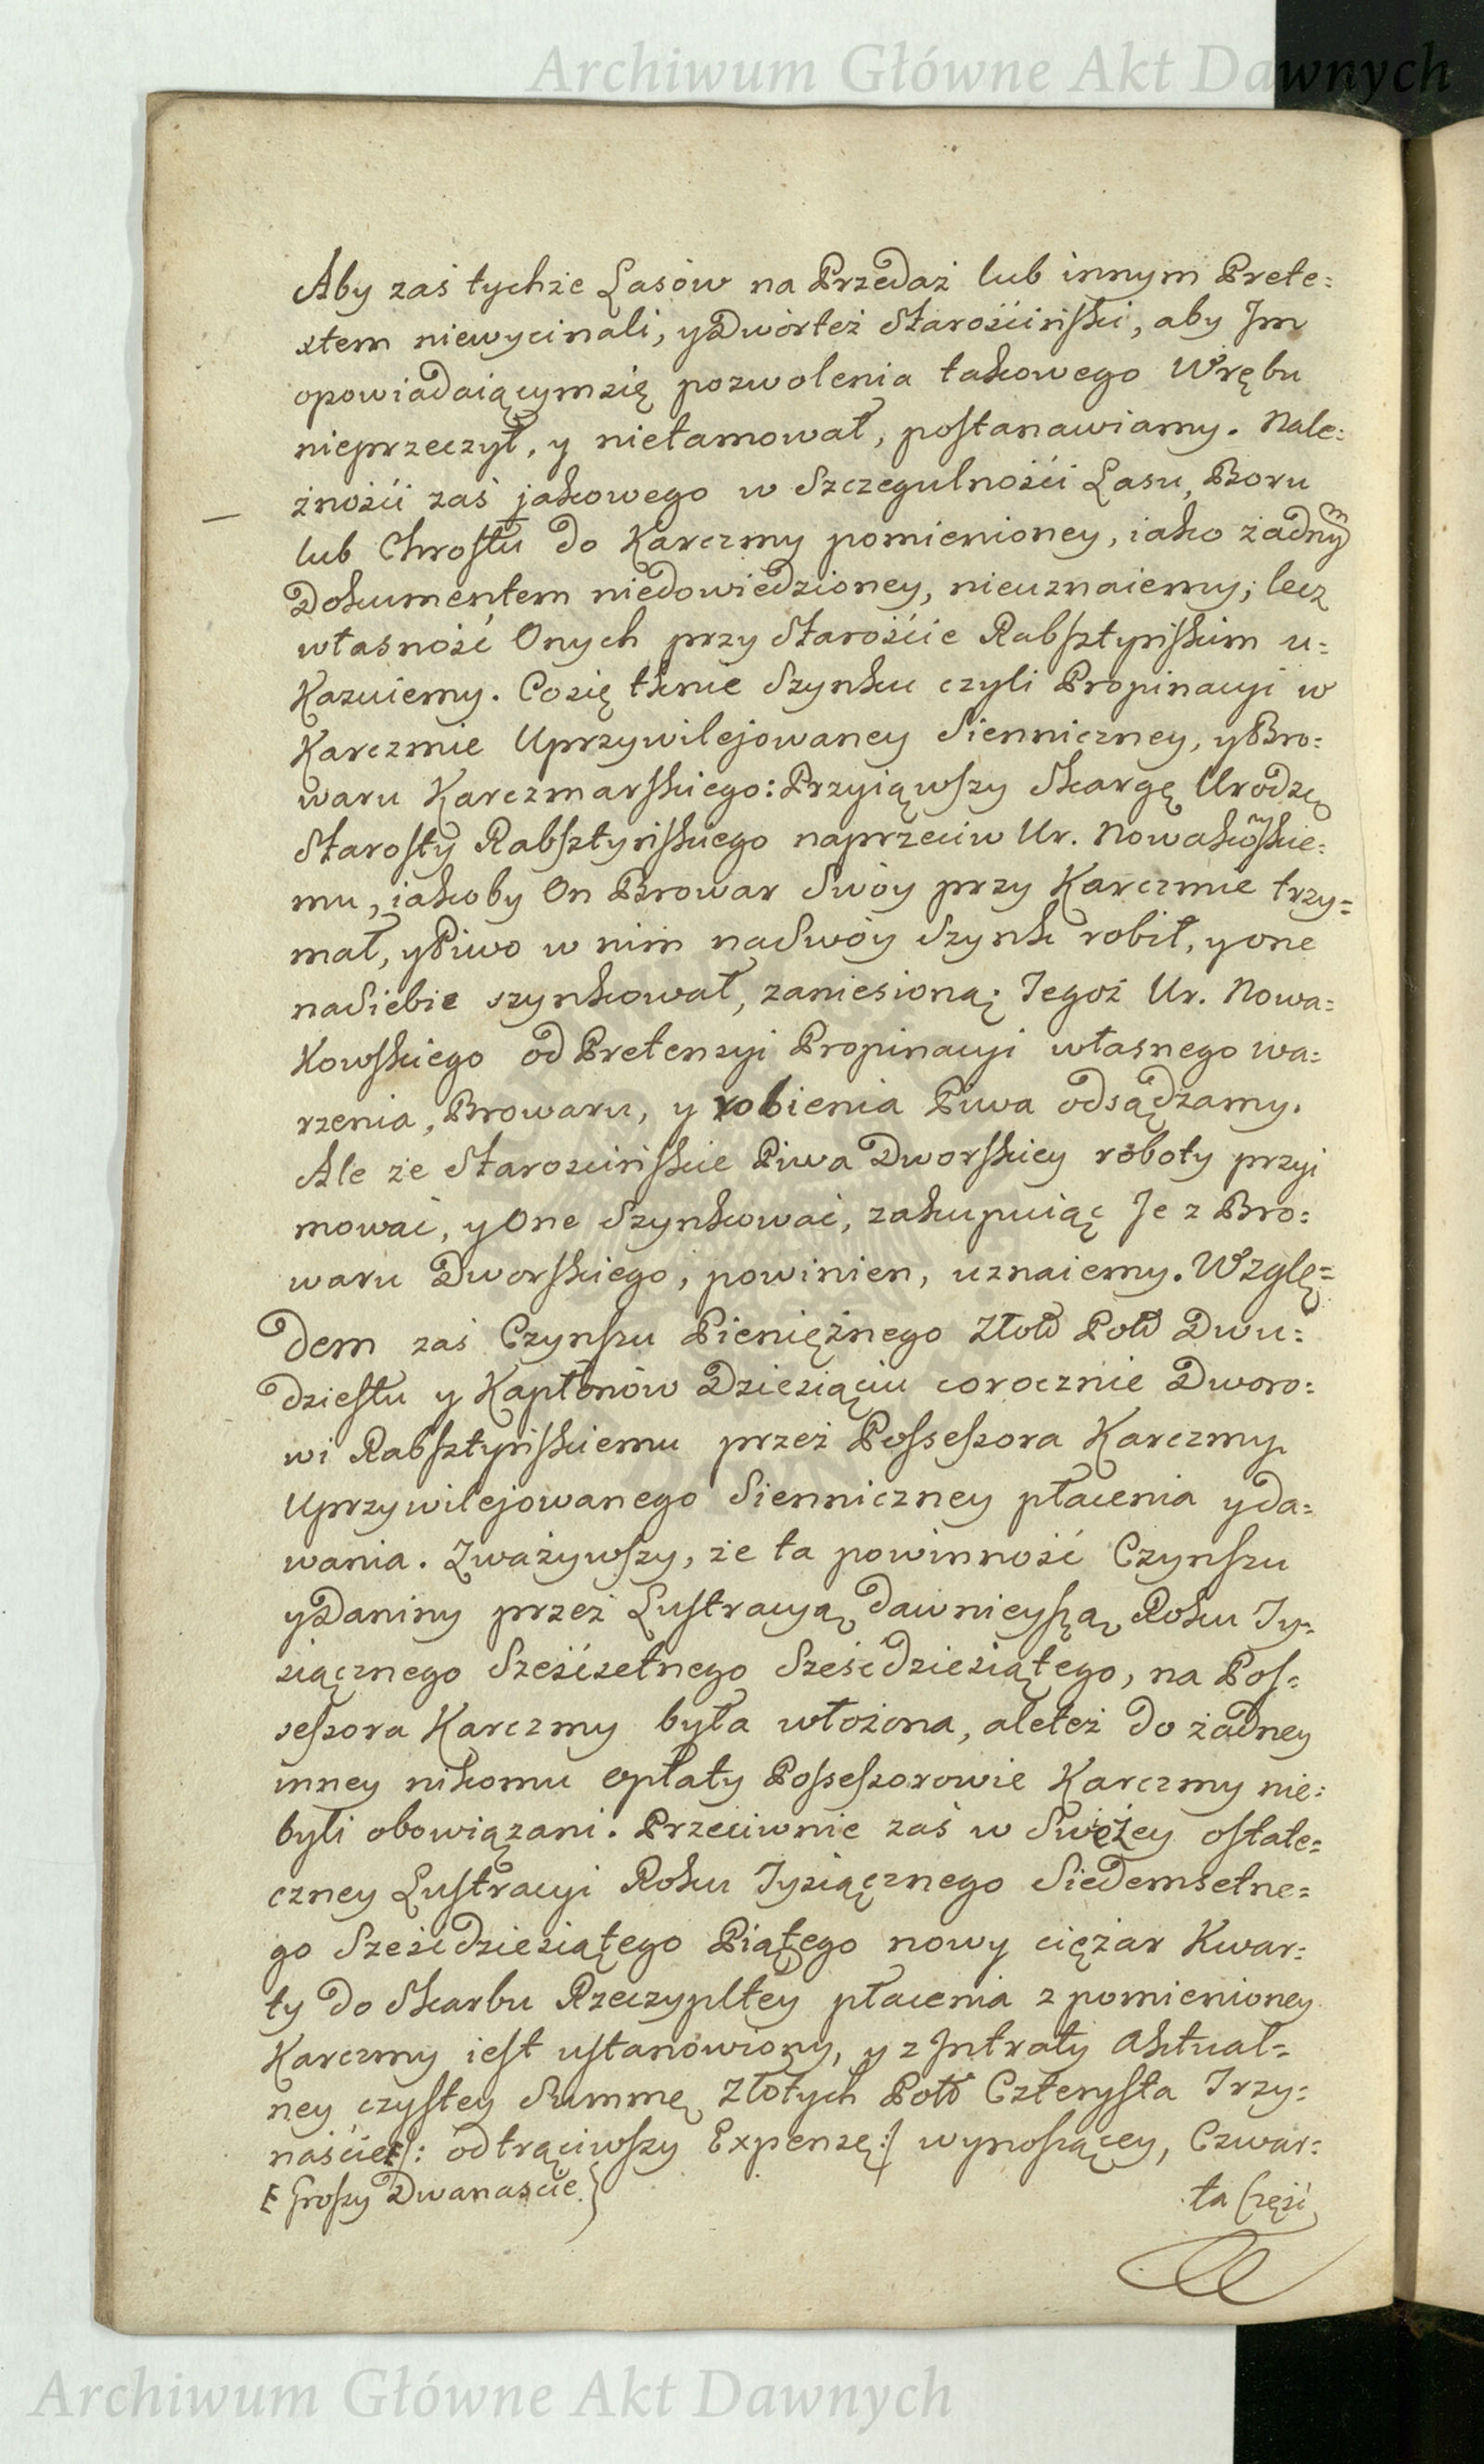 Archiwum Główne Akt Dawnych
Aby zaś tychże Lasów na Przedaż lub innym Prete=
xtem niewycinali, y Dwórteż Starościński, aby Jm
opowiadaiącymsię pozwolenia takowego Wrębu
nieprzeczył, y nietamował, postanawiamy. Nale=
żnośći zaś jakowego w Szczegulnośći Lasu, Boru
lub Chrostu do Karczmy pomienioney, iako żadnym
Dokumentem niedowiedzioney, nieuznaiemy; lecz
własność Onych przy Starośćie Rabsztyńskim u=
Kazuiemy. Cosię tknie Szynku czyli Propinacyi w
Karczmie Uprzywilejowaney Sienniczney, y Bro=
waru Karczmarskiego: Przyiąwszy Skargę Urodzo
Starosty Rabsztyńskiego naprzeciw Ur. Nowakowskie=
mu, iakoby On Browar Swóy przy Karczmie trzy=
mał, y Piwo w nim naSwóy Szynk robił, y one
naSiebie szynkował, zaniesioną; Tegoż Ur. Nowa=
Kowskiego od Pretensyi Propinacyi własnego wa=
rzenia, Browaru, y robienia Piwa odsądzamy.
Ale że Starościńskie Piwa Dworskiey roboty przyi
mować, y One Szynkować, zakupuiąc Je z Bro=
waru Dworskiego, powinien, uznaiemy. Wzglę=
dem zaś Czynszu Pieniężnego Złotd Pold Dwu=
dziestu y Kapłonów Dziesiąciu corocznie Dworo=
wi Rabsztyńskiemu przez Possessora Karczmy
Uprzywilejowanego Sienniczney płacenia y da=
wania. Zważywszy, że ta powinność Czynszu
y Daniny przez Lustracyą dawnieyszą Roku Ty=
siącznego Sześćsetnego Sześćdziesiątego, na Pos=
sessora Karczmy była włożona, aleteż do żadney
inney nikomu opłaty Possessorowie Karczmy nie=
byli obowiązani. Przeciwnie zaś w Swieżey ostate=
czney Lustracyi Roku Tysiącznego Siedemsetne=
go Sześćdziesiątego Piątego nowy ciężar Kwar=
ty do Skarbu Rzeczypltey płacenia z pomienioney
Karczmy iest ustanowiony, y z Intraty Aktual=
ney czystey Summę Złotych Pold Czterysta Trzy=
naście /: odtrąciwszy Expensę :/ wynoszącey, Czwar=
Groszy Dwanaście
ta Część
Archiwum Główne Akt Dawnych